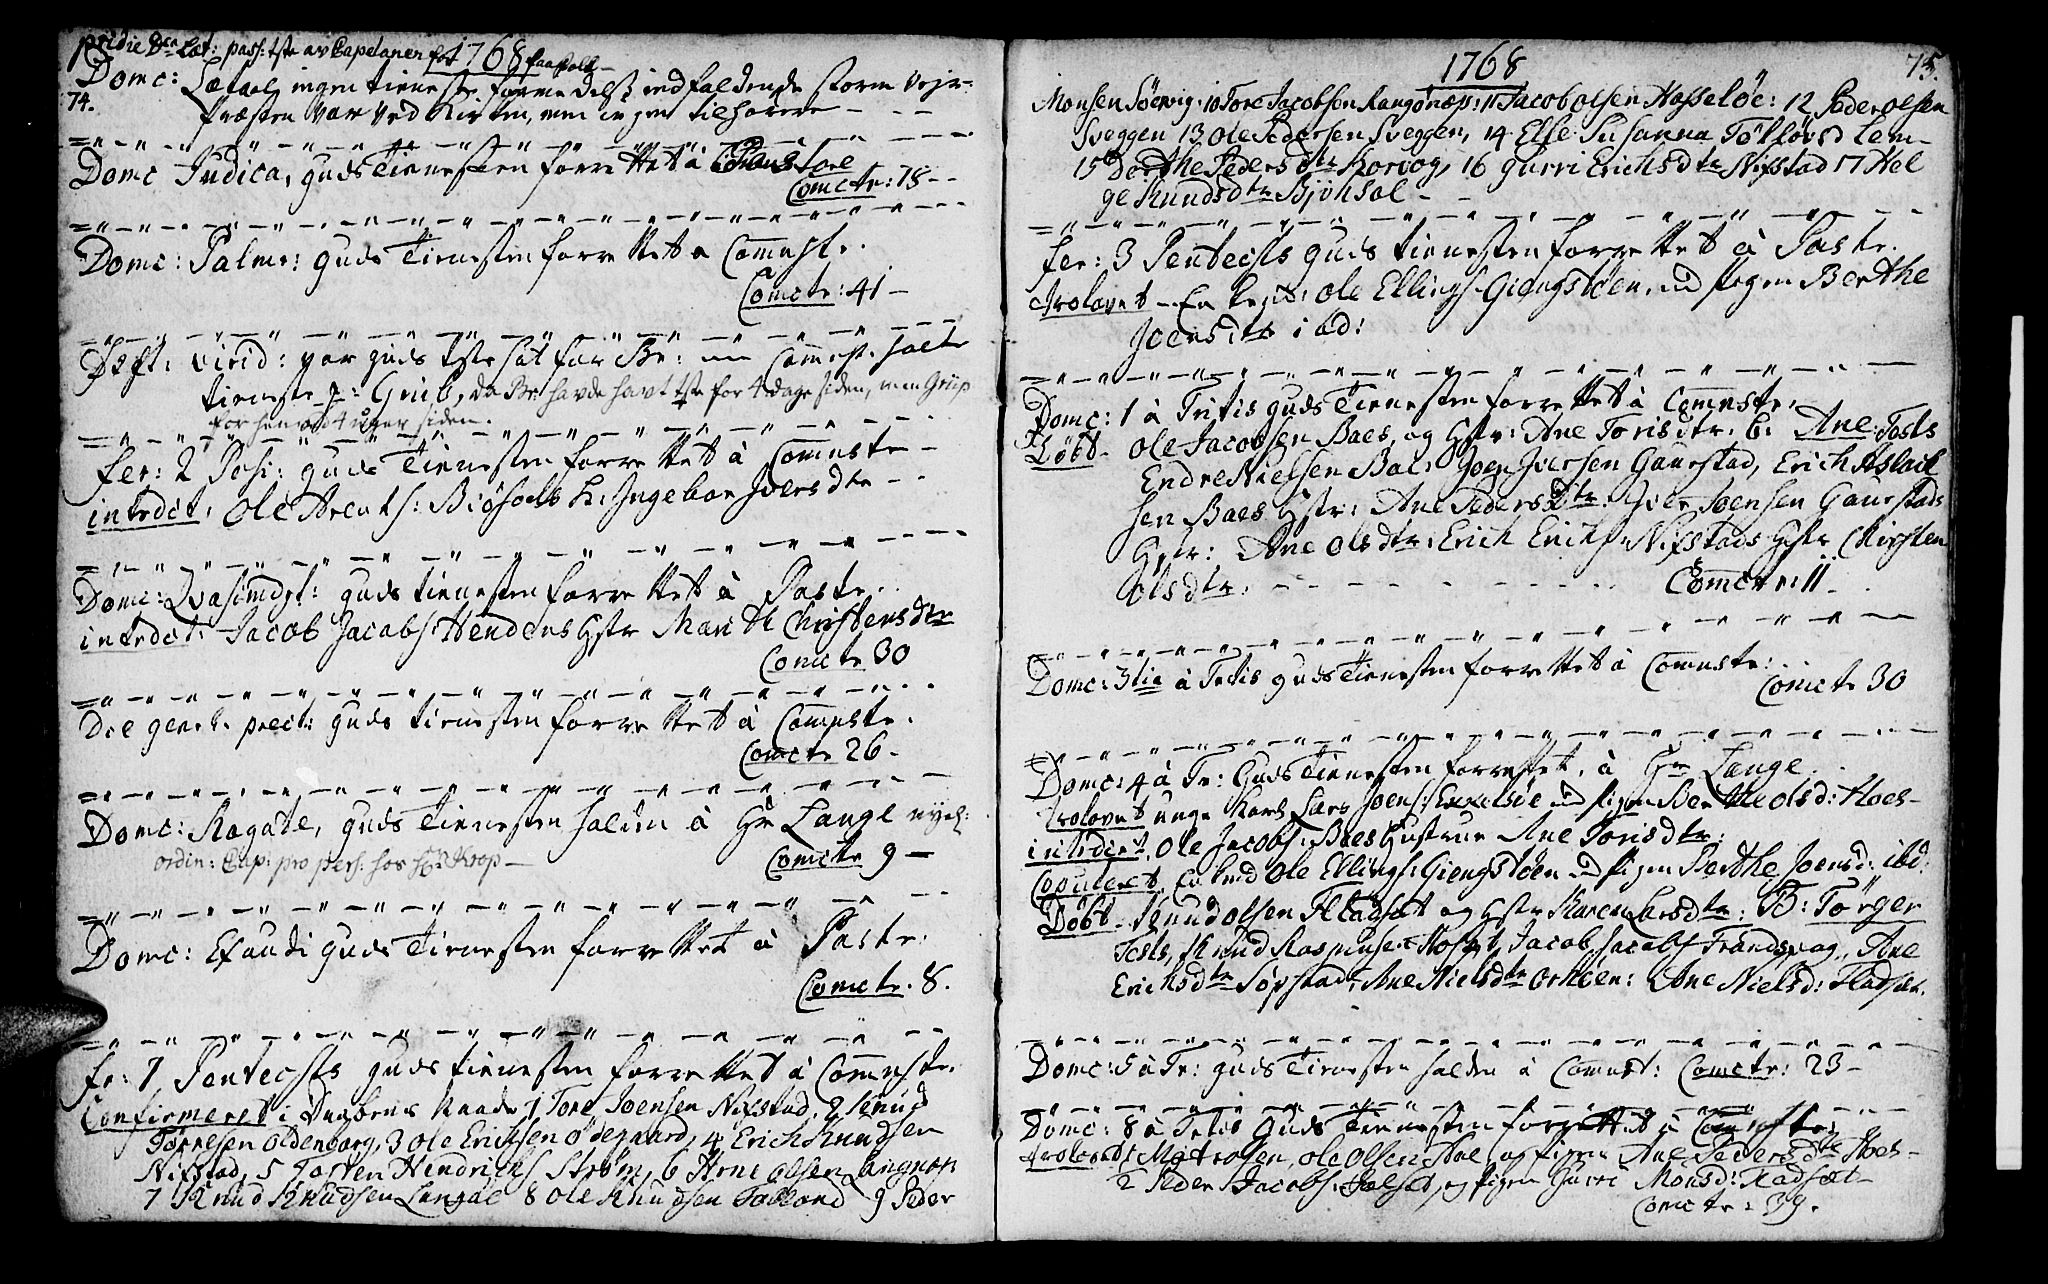 pridie Dca Læt: pass: tste av Capelanen for 1768 faa folk
Domc: Lætare ingen tieneste formedelst indfaldende storm vejr
74. Præsten var ved Kirken, men ingen tilhørere
Domc Judica, Guds Tienesten forrettet à Past:re
Comctr: 78
Domc: Palmr: Guds Tienesten forrettet à Commste.
Comctr: 41
Fest: virid: var Guds tste for Br: Commst. holte
tieneste p: Grib, da Br: havde havt tste for 4 dage siden, men Grip
for henved 4 uger siden.
fer: 2 Pasc: Guds Tienesten forrettet à Commste
introdct: Ole Arents: Biøsods h: Ingebor Iversdtr
Domc: Qvasimdgt: Guds tienesten forrettet à Paste.
introdct: Jacob Jacobs Hendens Hstr Marith Christensdtr
Comctr 30
Die genrt. prect: Guds tienesten forrettet à Commste.
Comctr 26
Domc: Rogate, Guds Tienesten holden à Hr Lange nyel:
ordin: Cap: pro pers: hos Hr Krop
Comctr 9
Domc: Exaudi Guds Tienesten forrettet à Paste:
Comctr. 8.
fr: 1 Pentecsts Guds tienesten forrettet à Commste.
Confirmeret i Daabens Naade 1 Tore Joensen Nistad, 2 Knud
Torresen Oldenborg, 3 Ole Ericksen Ødegaard, 4 Erich Knudsen
Nistad, 5 Torsten Hendrichs Strøm, 6 Arne Olsen Langnæs
7 Knud Knudsen Langøe 8 Ole Knudsen Farland 9 Peder
1768
75.
Monsen Sørvig: 10 Tore Jacobsen Rangønæs: 11 Jacob Olsen Hasseløe: 12 Peder Olsen
Sveggen 13 Ole Pedersen Sveggen, 14 Else Susanna Tøfløvsd Lem
15 Dorthe Pedersdtr Korvog, 16 Gurri Erichsdtr Nistad 17 Hel
ge Knudsdtr Bjørsol
fer: 3 Pentecsts Guds tienesten forrettet à Paste.
trolovet Ellings: Giengstøen, Pigen Berthe
Joensdtr ibd:
Domc: 1 à Tritis Guds Tienesten forrettet à Commste,
Døbt Ole Jacobsen Baes, og Hstr: Ane Torisdtr. B: Ane Tests
Endre Nielsen Bae: Joen Iversen Gaustad, Erich Aslach
sen Baes Hstr: Ane Pedersdtr. Iver Joensen Gaustads
Hstr: Ane Olsdtr. Erich Erichs: Nistads Hstr Chirsten
Olsdtr. Comctr: 11
Domc: 3tia à Tritis Guds Tienesten forrettet à Commste:
Comctr 30
Domc: 4 à Tr: Guds Tienesten forrettet, à Hr Lange
trolovet unge Karl Lars Joens: pigen Berthe Olsd: Hoes
introdcet Ole Jacobs: Baes Hustrue Ane Torisdtr:
Copuleret Ole Ellings: Giengstøen Pigen Berthe Joensd: ibd:
Døbt Knud Olsen Fladsæt og Hstr Karen Larsdtr: B: Tørger
Tests, Knud Rasmusen Hoset, Jacob Jacobs Frandsvog, Ane
Erichsdtr Søpstad, Ane Nielsdtr Orhoen: Ane Nielsd: Fladsæt.
Domc: 5 à Tr: Guds Tienesten holden à Commst: Comctr: 23
Domc: 8 à Tritis Guds Tienesten forrettet à Commste
trolovede 1 Matrosen, Ole Olsen Hoe, og pigen Ane Pedersdtr Hoes
2 Peder Jacobs: Solset, og pigen Gurri Monsd: Fladsæt
Comctr: 39.